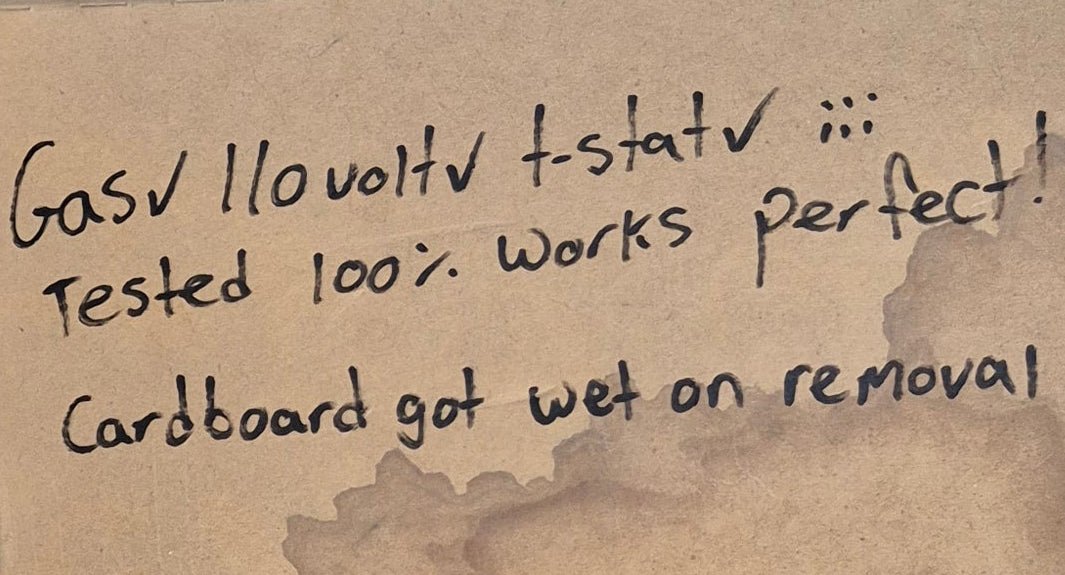 Gas✓ 110volt✓ t-stat✓ :::
Tested 100% works perfect!
Cardboard got wet on removal